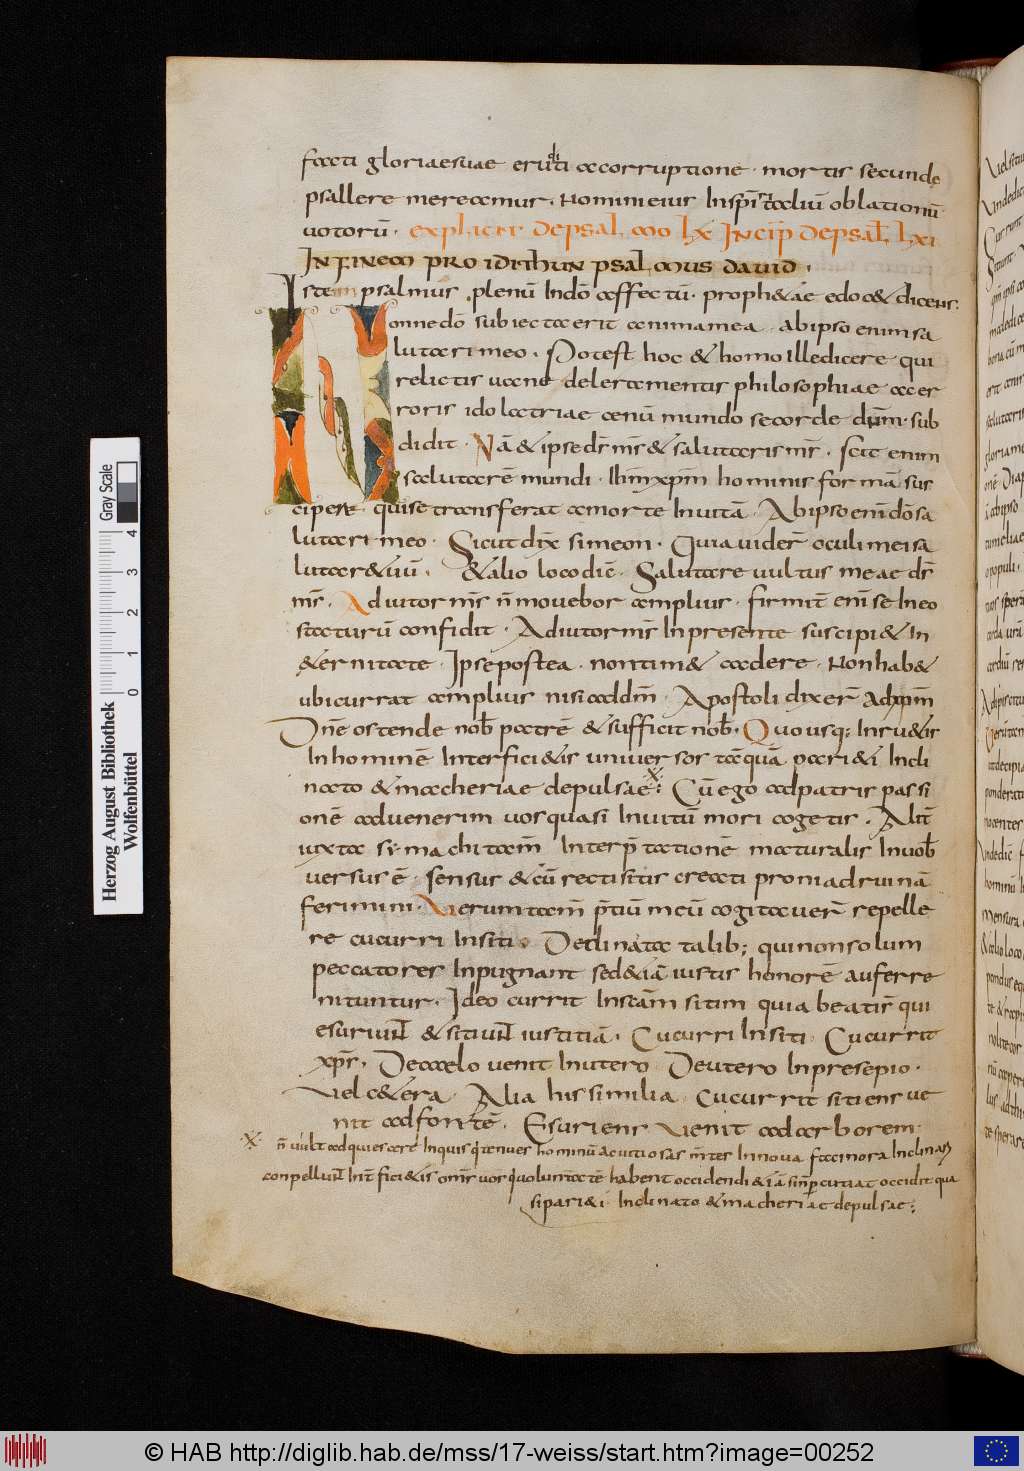 facti gloriae suae eruditi a corruptione · mortis secunde
psallere mereamur · Nomini eius In sp̄iталiū oblationū
uotorū · explacit De psalmo lx Incip̄ De psal̄ lxi
IN FINEM PRO IDITHUN psalmus dauid ·
Iste psalmus plenū In dō affectū · proph&ae edoc& dicens·
Nonne dō subiecta erit anima mea · ab ipso enim sa
lutari meo · Potest hoc & homo Ille dicere qui
relictis uane delectamentis philosophiae ac er
roris idolatriae aenū mundo se corde dnm̄ · sub
didit · Nā & ipse ds̄ ms̄ & salutaris ms̄ · scit enim
salutarē mundi · Ihm̄ xpm̄ hominis formā sus
cipere · qui se transferat a morte In uitā · Ab ipso enī dō sa
lutari meo · Sicut dix̄ simeon · Quia uider̄ oculi mei sa
lutare tuū · & alio loco dic̄ · Salutare uultus meae ds̄
ms̄ · Adiutor ms̄ n̄ mouebor amplius · firmit̄ enī se In eo
staturū confidit · Adiutor ms̄ In presente suscipi& In
&ernitate · Ipse postea · non tim& cadere · Non hab&
ubi currat amplius nisi ad dm̄ · Apostoli dixer̄ ad xpm̄
Dn̄e ostende nob̄ patrē & sufficit nob̄ · Quousq; Inru&is
In hominē Interfici&is uniuersos tāquā pari&i Incli
nato & macheriae depulsae ; Cū ego ad patris passi
onē aduenerim uos quasi Inuitū mori cogetis · Alit̄
iuxta simachi tam̄ Interp̄tationē macturalis In uob̄
uersus ē · sensus & cū recti sitis creati proni ad ruinā
ferimini · Uerum tam̄ p̄tiū meū cogitauer̄ repelle
re cucurri In siti · Declinata talib; qui non solum
peccatores Inpugnant sed &iā iustis honorē auferre
nituntur · Ideo currit In scām sitim quia beatis̄ qui
esuriunt & sitiunt iustitiā · Cucurri In siti · Cucurrit
xps̄ · De caelo uenit In utero De utero In presepio ·
Uel c&era · Alia his similia · Cucurrit sitiens ue
nit ad fontē · Esuriens uenit ad arborem ·
·X· n̄ uult adquiescere Inquis q̄tenues hominū ac uitiosas m̄tes In noua facinora Inclinas
conpellunt Int̄fici&is om̄s uos q̄ uoluntatē habent occidendi & iā sin p̄cutiat occidit qua
si pari&i · Inclinato & macheriae depulsae ;
Herzog August Bibliothek
Wolfenbüttel
Gray Scale
0 1 2 3 4
© HAB http://diglib.hab.de/mss/17-weiss/start.htm?image=00252